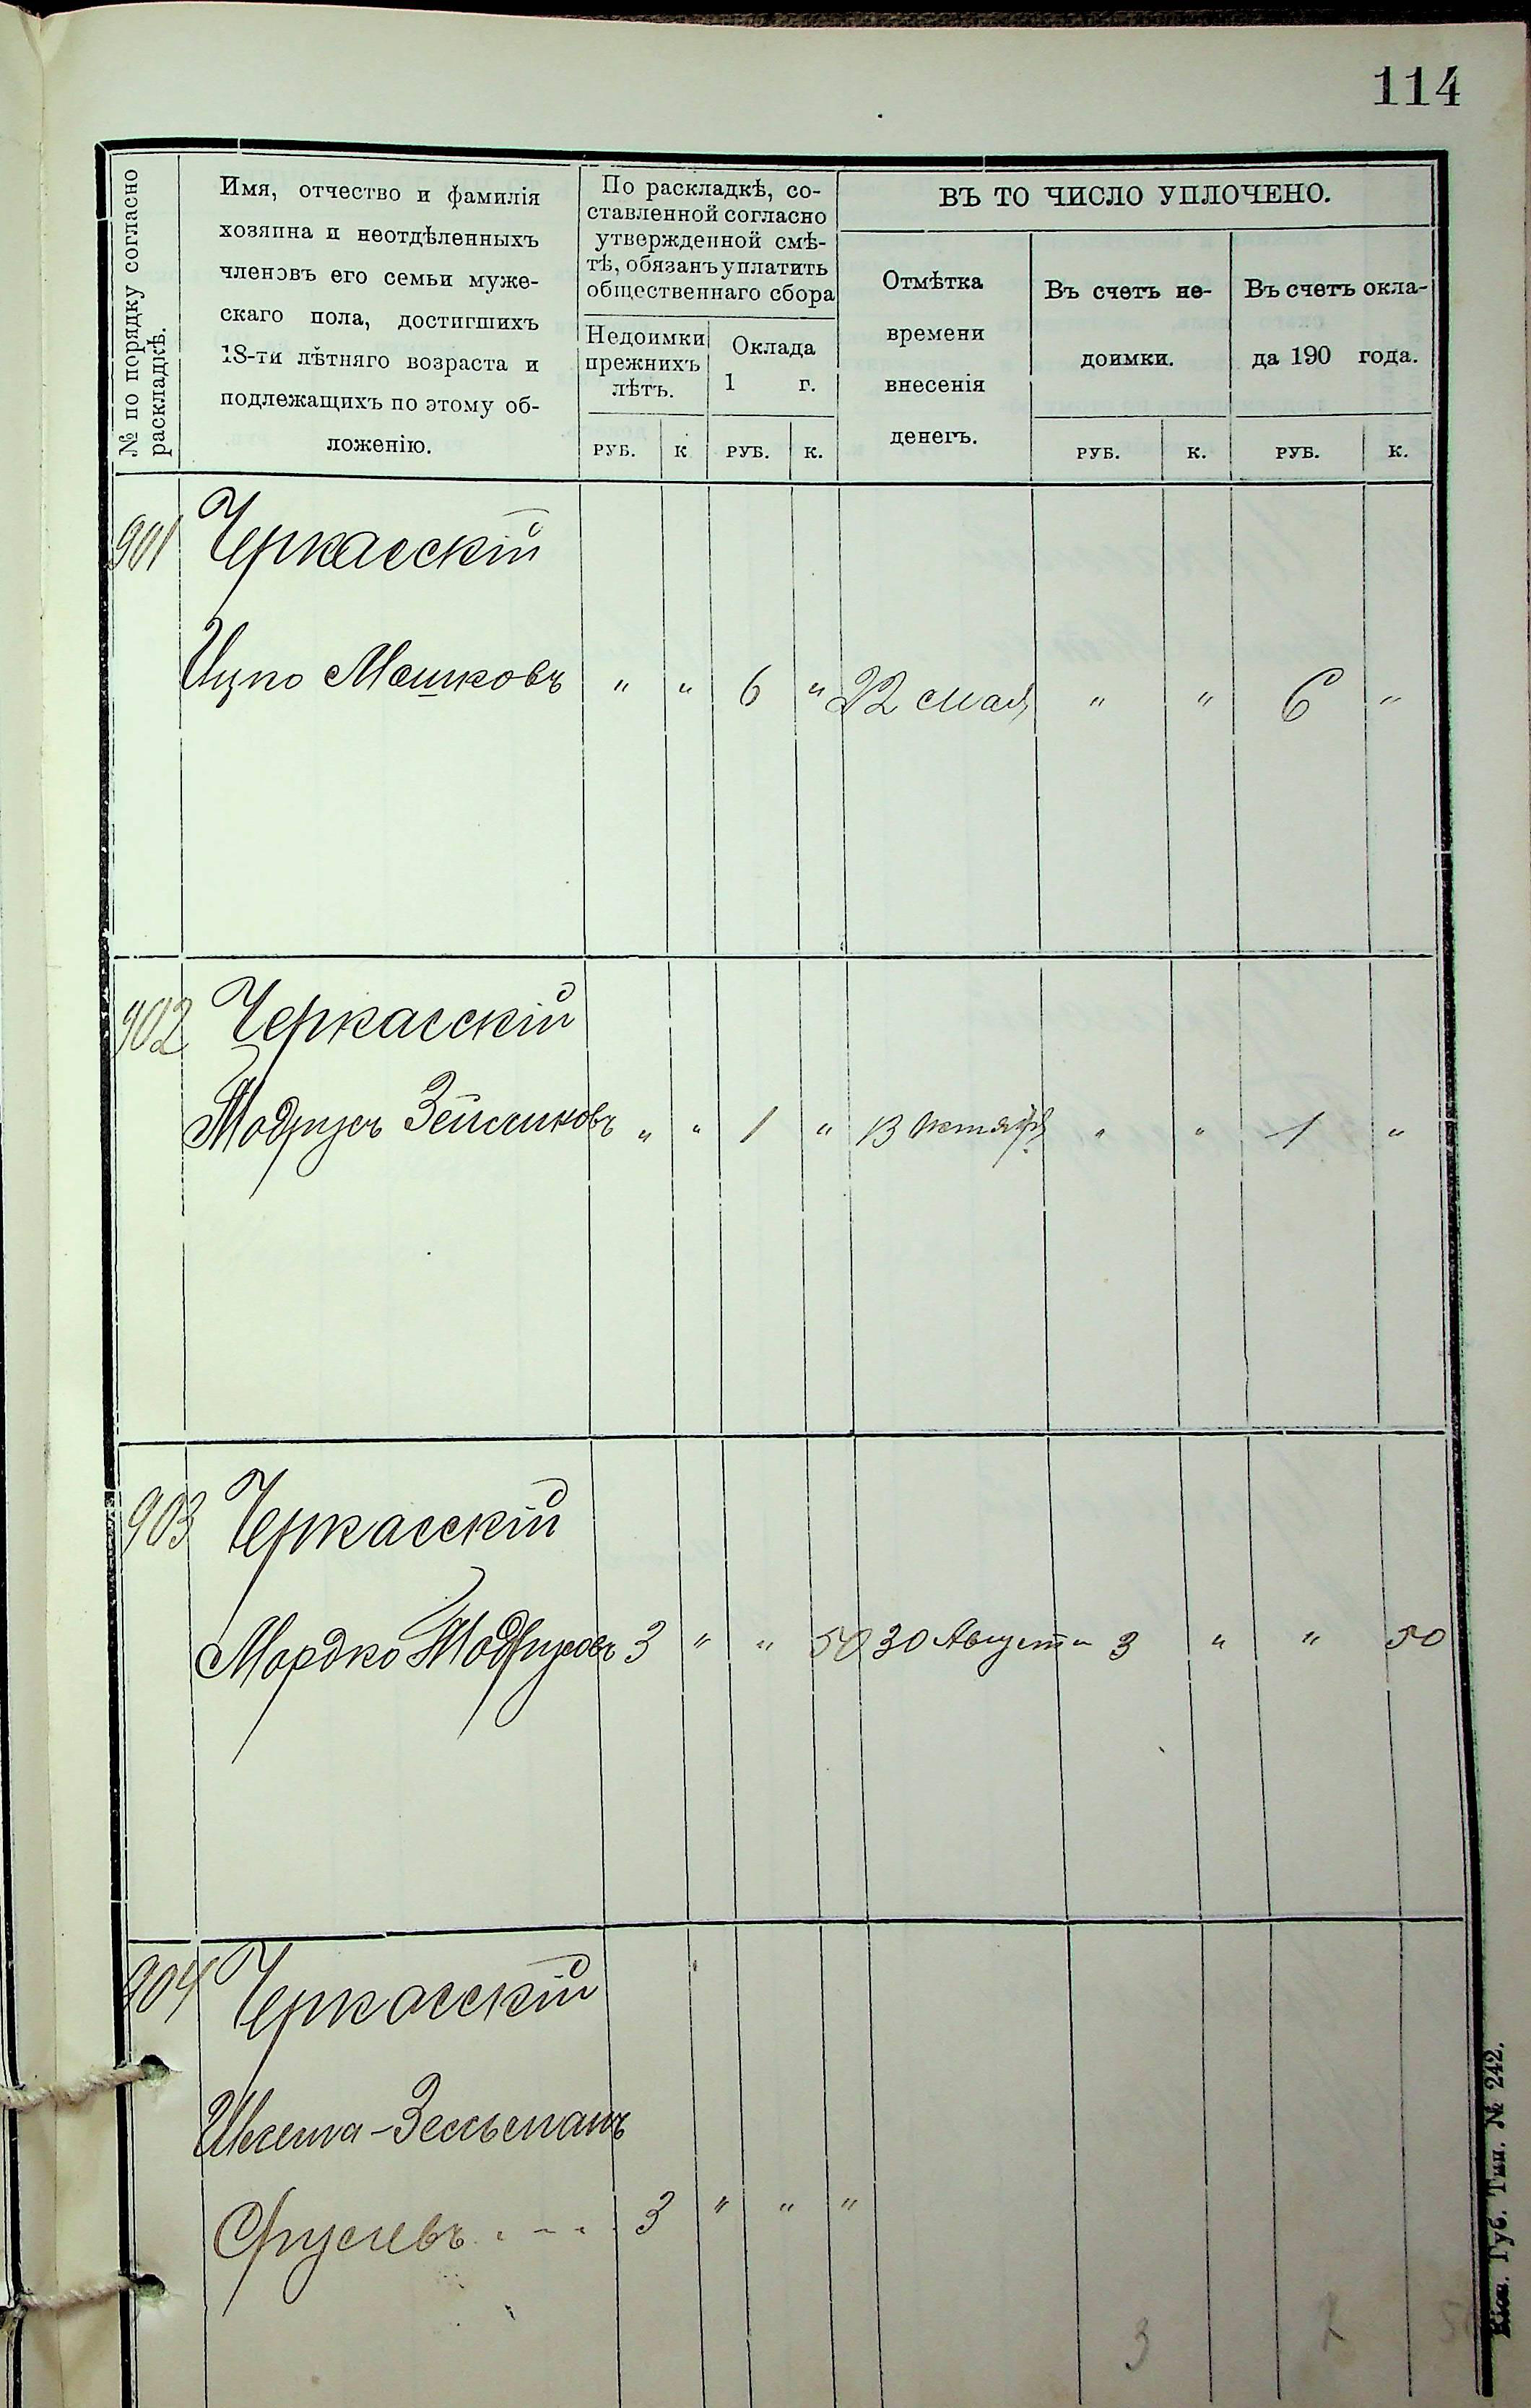 114
№ по порядку согласно
раскладкѣ.
Имя, отчество и фамилія
хозяина и неотдѣленныхъ
членовъ его семьи муже-
скаго пола, достигшихъ
18-ти лѣтняго возраста и
подлежащихъ по этому об-
ложенію.
По раскладкѣ, со-
ставленной согласно
утвержденной смѣ-
тѣ, обязанъ уплатить
общественнаго сбора
Недоимки
прежнихъ
лѣтъ.
Оклада
1 г.
РУБ. К РУБ. К.
ВЪ ТО ЧИСЛО УПЛОЧЕНО.
Отмѣтка
времени
внесенія
денегъ.
Въ счетъ не-
доимки.
РУБ. К.
Въ счетъ окла-
да 190 года.
РУБ. К.
901 Черкасскій
Ицко Мошковъ " " 6 " 22 мая " " 6 "
902 Черкасскій
" " 1 " 13 Октября " " 1 "
903 Черкасскій
Мордко 3 " " 50 30 Августа 3 " " 50
904 Черкасскій
Сруслевъ 3 " " "
3 7 50
Кіев. Губ. Тип. № 242.